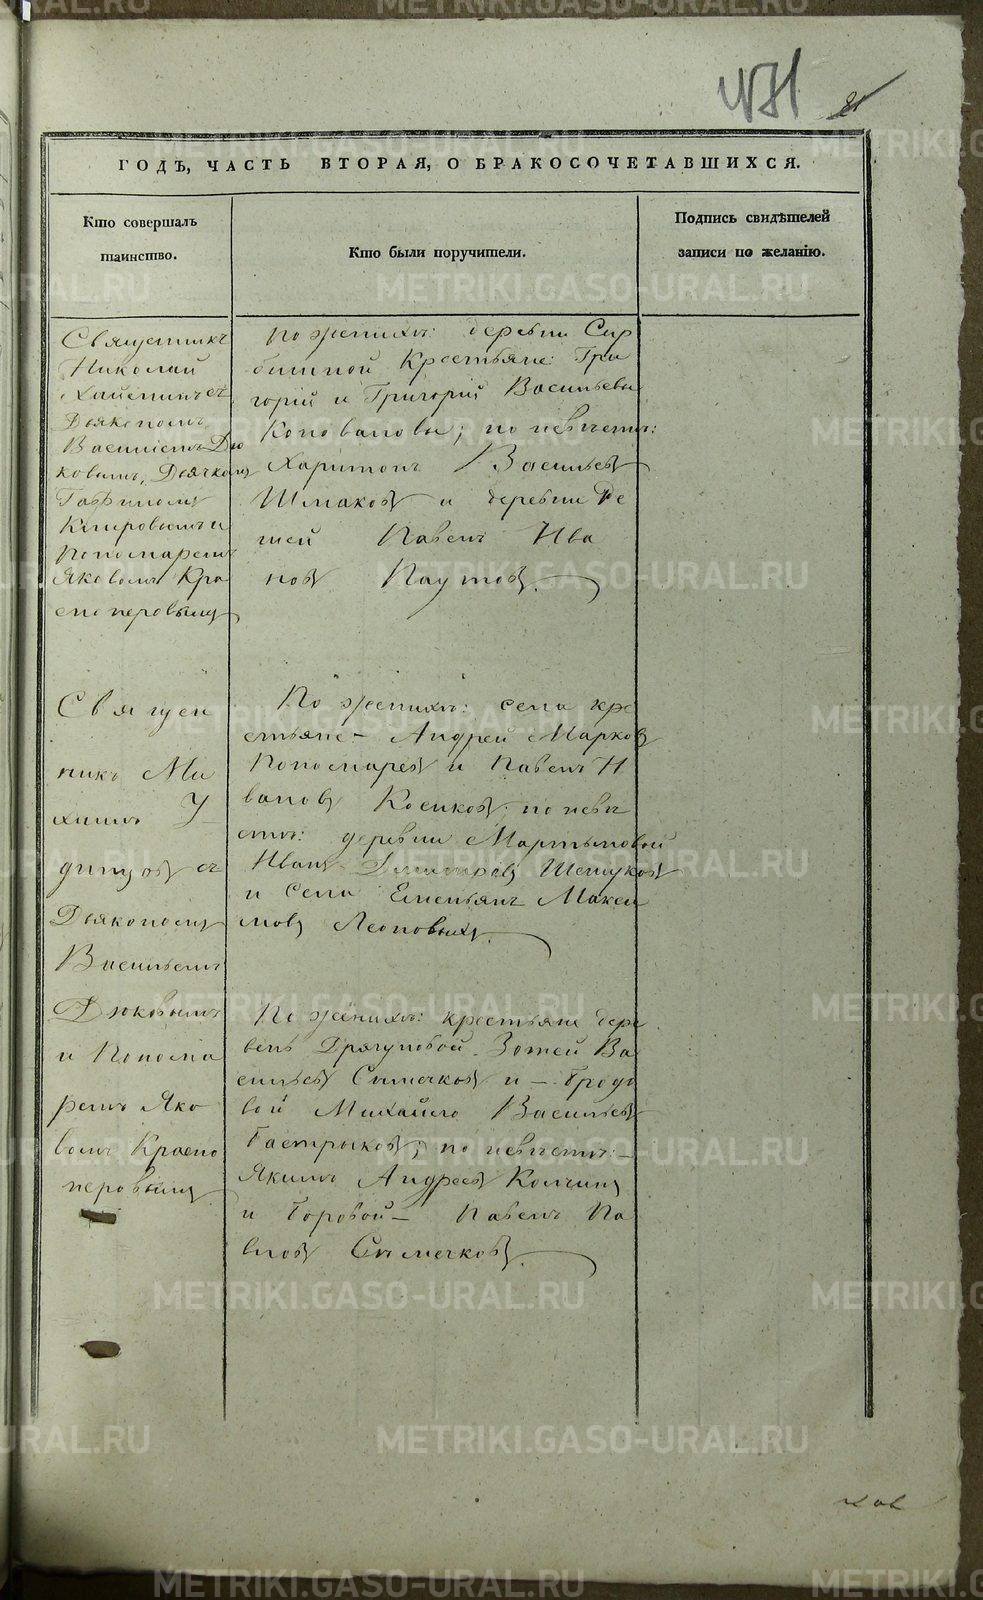 431
81
ГОДЪ, ЧАСТЬ ВТОРАЯ, О БРАКОСОЧЕТАВШИХСЯ.
Кто совершалъ
таинство.
Кто были поручители.
Подпись свидѣтелей
записи по желанію.
Священникъ
Николай
съ
Дьякономъ
Василіемъ Дю
ковымъ, Дьячкомъ
Киировымъ и
Пономаремъ
Яковомъ Кра
сноперовымъ
По женихѣ: деревни Сир
биттной Крестьяне: Гри
горій и Григорій Васильевы
Коноваловы; по невѣстѣ:
Харитонъ Васильевъ
Шмаковъ и деревни Ре
шей Павелъ Ива
новъ Паутовъ.
Священ
никъ Ми
хаилъ У
динцовъ съ
Дьякономъ
Васильемъ
Дюковымъ
и Понома
ремъ Яко
вомъ Красно
перовымъ
По женихѣ: села кре
стьяне – Андрей Марковъ
Пономаревъ и Павелъ И
вановъ Косиковъ; по невѣ
стѣ: деревни Мартыновой
Иванъ Димитріевъ Шешуковъ
и села Емельянъ Макси
мовъ Леоновыхъ.
По женихѣ: крестьяне дере
вень Драгуновой Зотей Ва
сильевъ Сымочковъ и – Бродо
вой Михайло Васильевъ
Гастрыковъ; по невѣстѣ: –
Якимъ Андреевъ Колчинъ
и Боровой – Павелъ Па
вловъ Сымочковъ.
METRIKI.GASO-URAL.RU